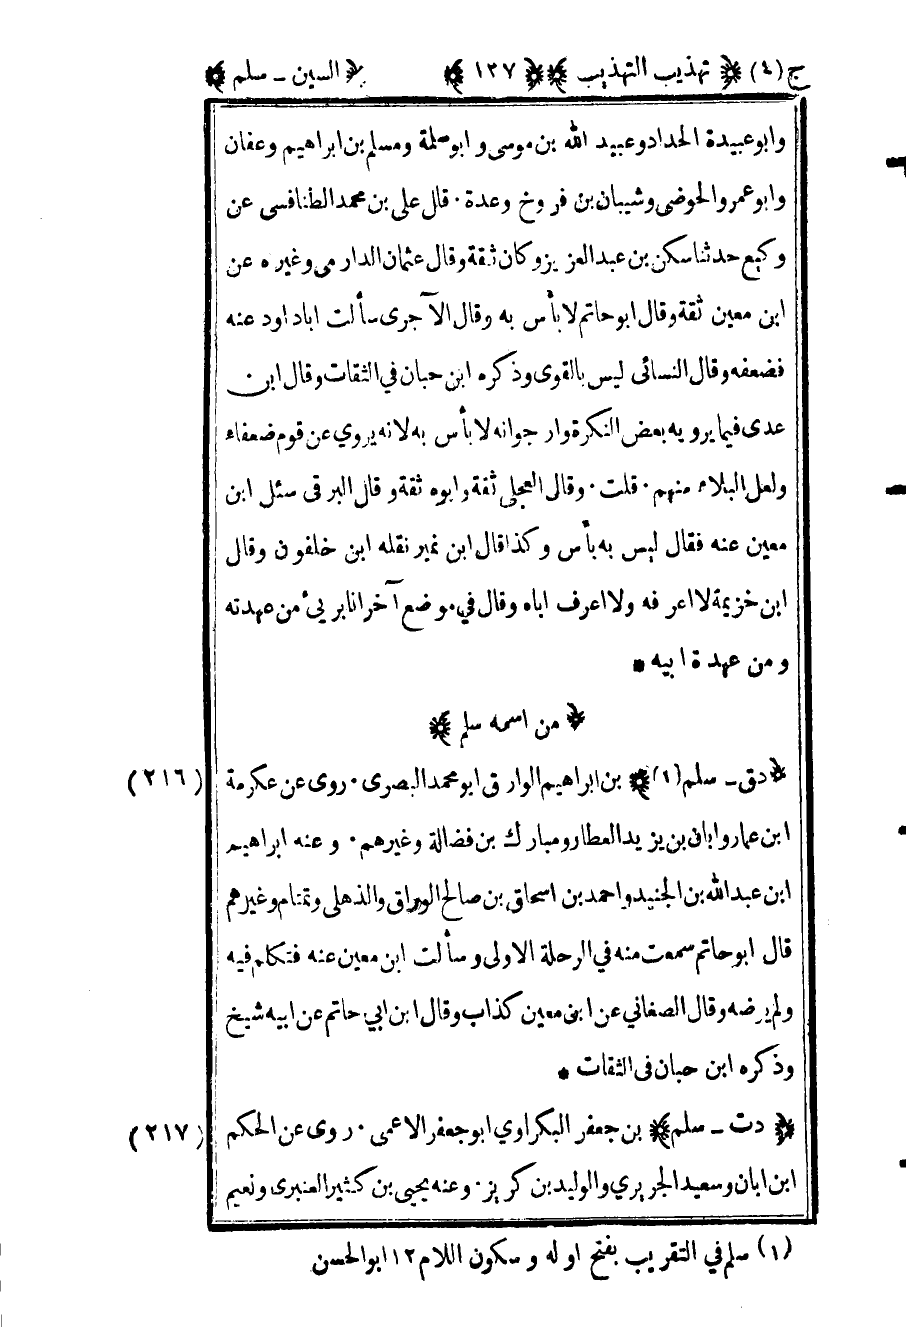 ج (٤) ﴿ تهذيب التهذيب ﴾ ﴿ ١٢٧ ﴾ ﴿ السين - سلم ﴾
وابو عبيدة الحداد وعبيد الله بن موسى و ابو سلمة ومسلم بن ابراهيم وعفان
وابو عمر والحوضى وشيبان بن فروخ وعدة · قال على بن محمد الطنافسى عن
وكيع حدثنا سكن بن عبدالعزيز وكان ثقة وقال عثمان الدارمى وغيره عن
ابن معين ثقة وقال ابو حاتم لا بأس به وقال الآجرى سألت اباداود عنه
فضعفه وقال النسائى ليس بالقوى وذكره ابن حبان في الثقات وقال ابن
عدى فيما يرويه بعض النكرة وارجو انه لا بأس به لانه يروي عن قوم ضعفاء
ولعل البلاء منهم · قلت · وقال العجلى ثقة وابوه ثقة وقال البرقى سئل ابن
معين عنه فقال ليس به بأس وكذا قال ابن نمير نقله ابن خلفون وقال
ابن خزيمة لا اعرفه ولا اعرف اباه وقال في موضع آخر انا بريئ من عهدته
ومن عهدة ابيه *
﴿ من اسمه سلم ﴾
(٢١٦) ﴿ دق - سلم (١) ﴾ بن ابراهيم الوارق ابو محمد البصرى · روى عن عكرمة
ابن عمار وابان بن يزيد العطار ومبارك بن فضالة وغيرهم · وعنه ابراهيم
ابن عبدالله بن الجنيد واحمد بن اسحاق بن صالح الوراق والذهلى وتمتام وغيرهم
قال ابو حاتم سمعت منه في الرحلة الاولى وسألت ابن معين عنه فتكلم فيه
ولم يرضه وقال الصغاني عن ابن معين كذاب وقال ابن ابي حاتم عن ابيه شيخ
وذكره ابن حبان فى الثقات *
(٢١٧) ﴿ دت - سلم ﴾ بن جعفر البكراوي ابو جعفر الاعمى · روى عن الحكم
ابن ابان وسعيد الجريري والوليد بن كريز · وعنه يحيى بن كثير العنبرى ونعيم
(١) سلم في التقريب بفتح اوله وسكون اللام ١٢ ابو الحسن